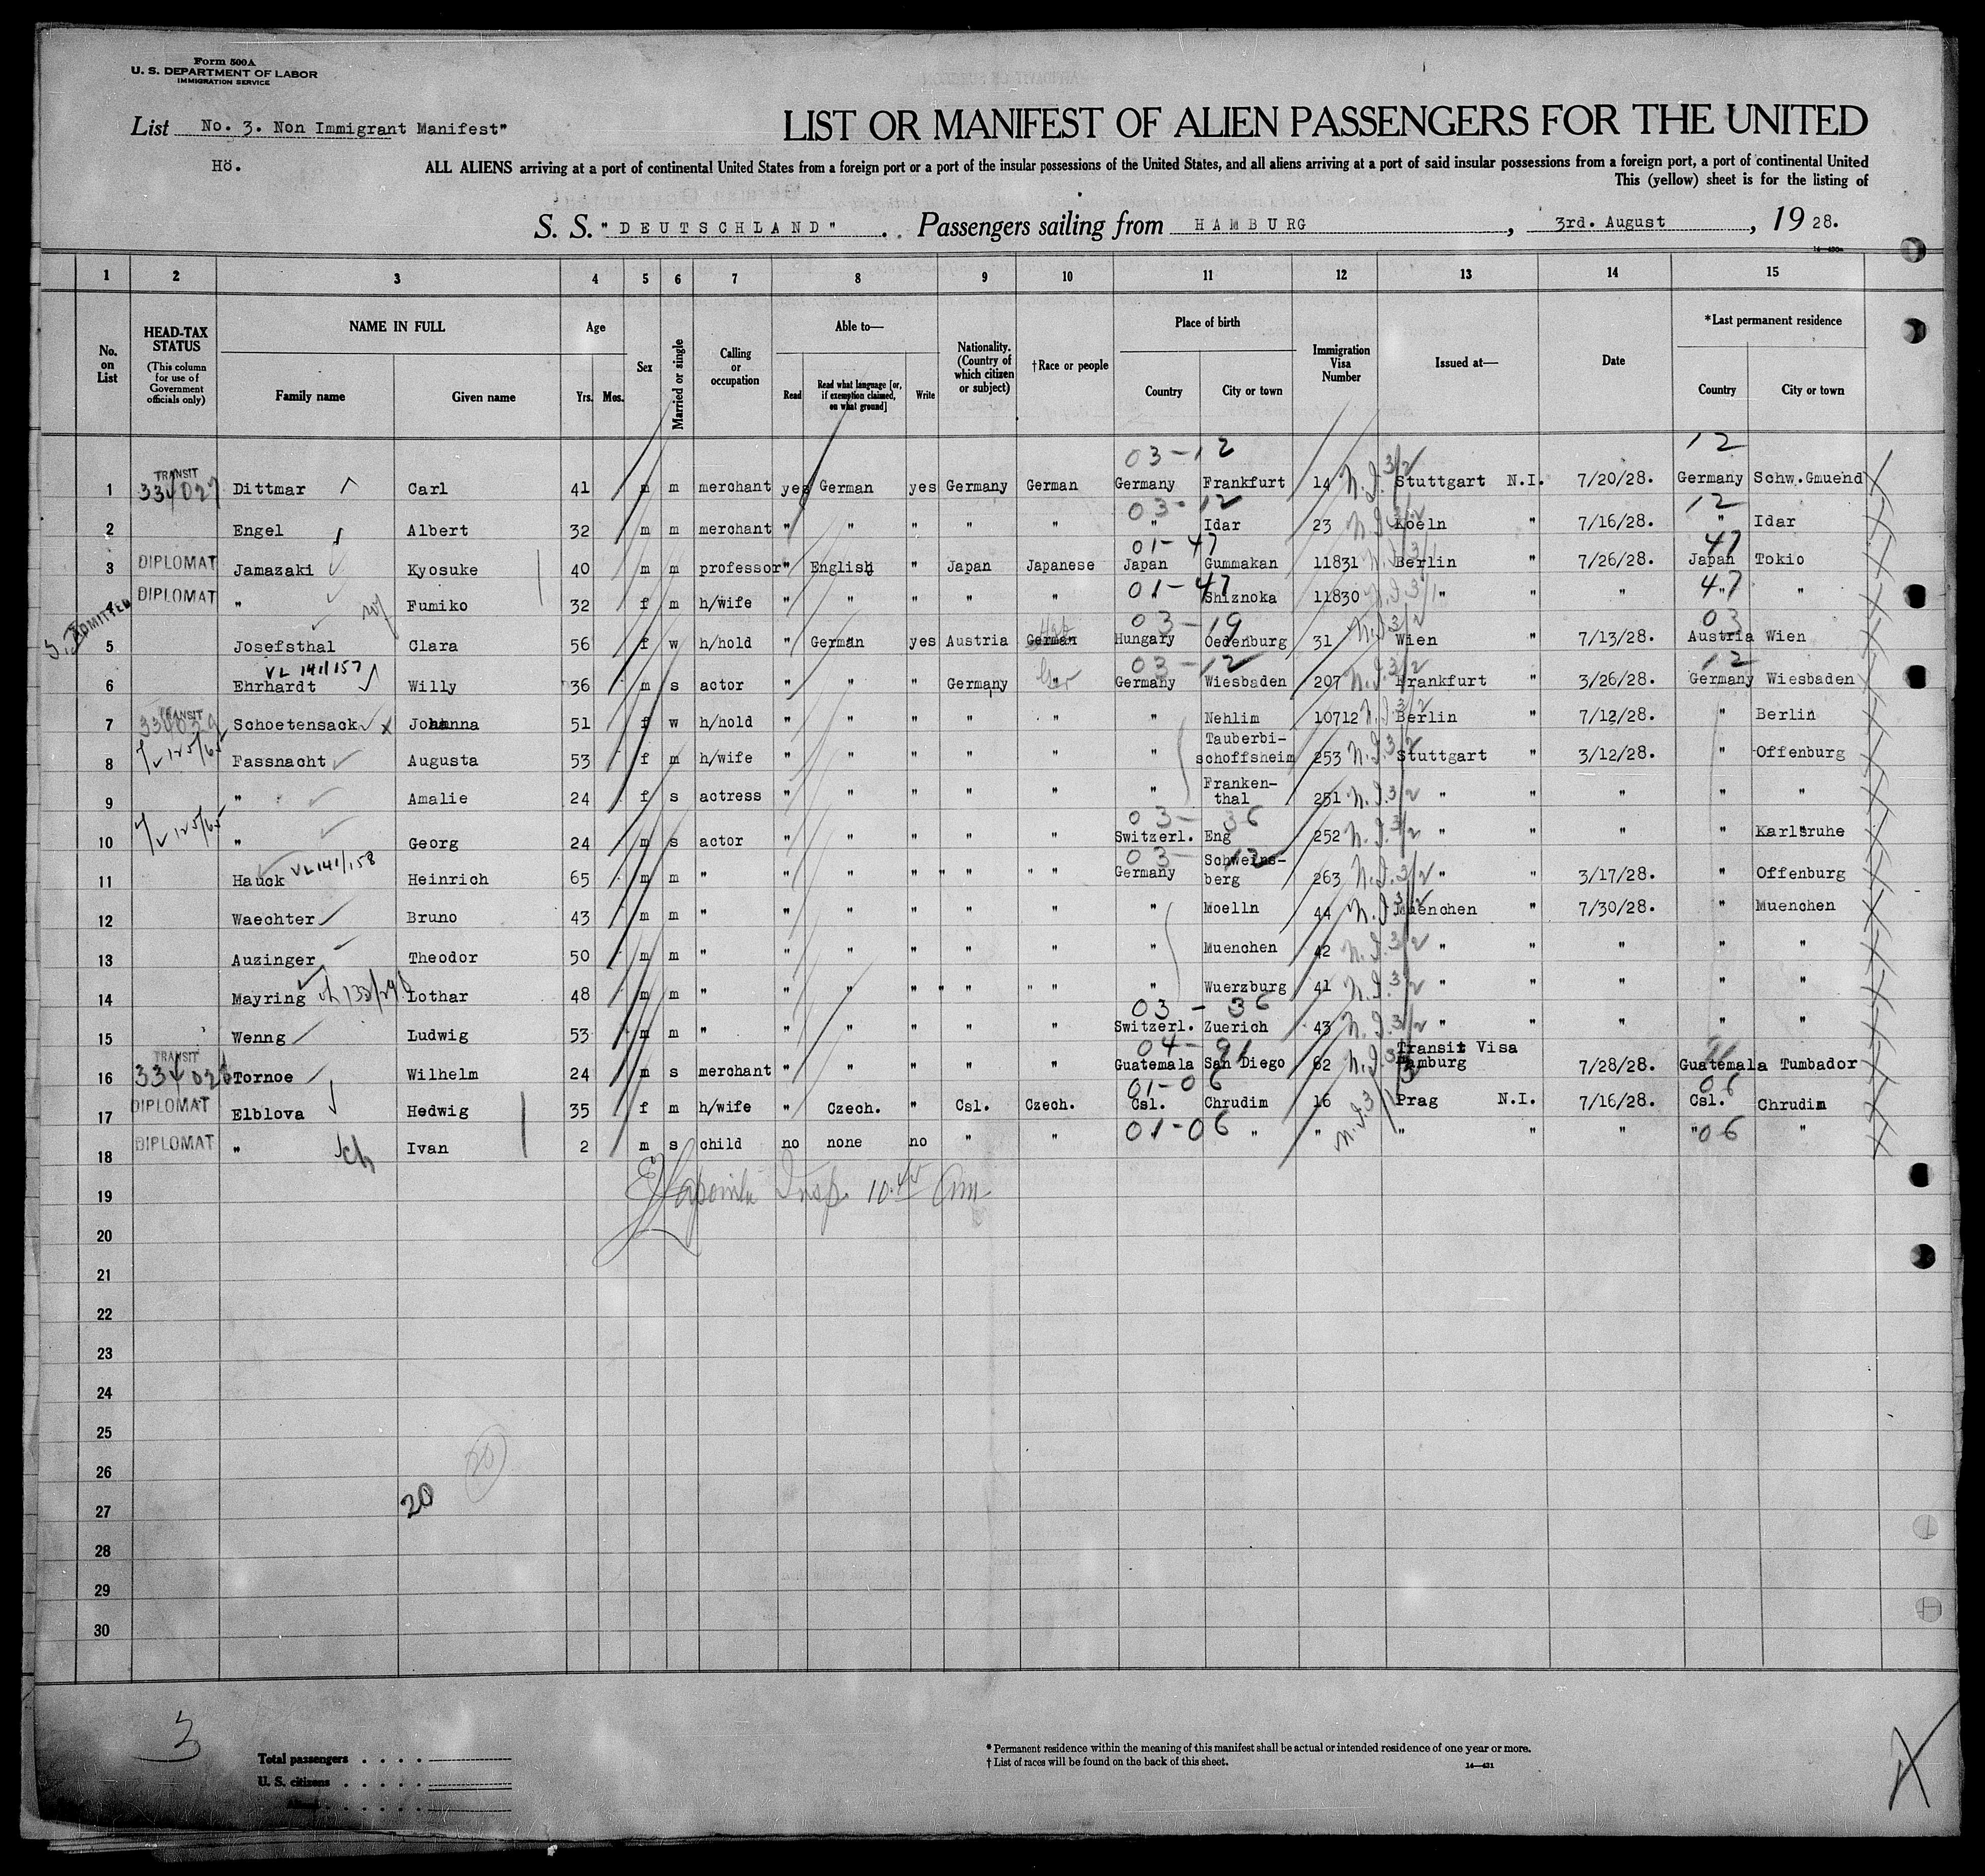 Form 500A
U. S. DEPARTMENT OF LABOR
IMMIGRATION SERVICE
List No. 3. Non Immigrant Manifest"
Hö.
LIST OR MANIFEST OF ALIEN PASSENGERS FOR THE UNITED
ALL ALIENS arriving at a port of continental United States from a foreign port or a port of the insular possessions of the United States, and all aliens arriving at a port of said insular possessions from a foreign port, a port of continental United
This (yellow) sheet is for the listing of
S. S. "DEUTSCHLAND" Passengers sailing from HAMBURG, 3rd. August, 1928.
1 2 3 4 5 6 7 8 9 10 11 12 13 14 15
No. on List
HEAD-TAX STATUS
(This column for use of Government officials only)
NAME IN FULL
Family name Given name
Age
Yrs. Mos.
Sex
Married or single
Calling or occupation
Able to—
Read
Read what language [or, if exemption claimed, on what ground]
Write
Nationality. (Country of which citizen or subject)
†Race or people
Place of birth
Country City or town
Immigration Visa Number
Issued at—
Date
*Last permanent residence
Country City or town
03-12 12
1 TRANSIT 334027 Dittmar Carl 41 m m merchant yes German yes Germany German Germany Frankfurt 14 N.I. 3/2 Stuttgart N.I. 7/20/28. Germany Schw.Gmuend
03-12 12
2 Engel Albert 32 m m merchant " " " " " " Idar 23 N.I. 3/2 Koeln " 7/16/28. " Idar
01-47 47
3 DIPLOMAT Jamazaki Kyosuke 40 m m professor " English " Japan Japanese Japan Gummakan 11831 N.I. 3/1 Berlin " 7/26/28. Japan Tokio
01-47 47
4 DIPLOMAT " Fumiko 32 f m h/wife " " " " " " Shiznoka 11830 N.I. 3/1 " " " " "
03-19 03
ADMITTED 5 Josefsthal Clara 56 f w h/hold " German yes Austria German Hungary Oedenburg 31 N.I. 3/2 Wien " 7/13/28. Austria Wien
VL 141/157 03-12 12
6 Ehrhardt Willy 36 m s actor " " " Germany " Ger Germany Wiesbaden 207 N.I. 3/2 Frankfurt " 3/26/28. Germany Wiesbaden
7 TRANSIT Schoetensack x Johanna 51 f w h/hold " " " " " " Nehlim 10712 N.I. 3/2 Berlin " 7/12/28. " Berlin
8 V 125/65 Fassnacht Augusta 53 f m h/wife " " " " " " Tauberbi-schoffsheim 253 N.I. 3/2 Stuttgart " 3/12/28. " Offenburg
9 " Amalie 24 f s actress " " " " " " Franken-thal 251 N.I. 3/2 " " " " "
03-36
10 V 125/65 " Georg 24 m s actor " " " " " Switzerl. Eng 252 N.I. 3/2 " " " " Karlsruhe
VL 141/158 03-12
11 Hauck Heinrich 65 m m " " " " " " Germany Schweins-berg 263 N.I. 3/2 " " 3/17/28. " Offenburg
12 Waechter Bruno 43 m m " " " " " " " Moelln 44 N.I. 3/2 Muenchen " 7/30/28. " Muenchen
13 Auzinger Theodor 50 m m " " " " " " " Muenchen 42 N.I. 3/2 " " " " "
14 Mayring Lothar 48 m m " " " " " " " Wuerzburg 41 N.I. 3/2 " " " " "
03-36
15 Wenng Ludwig 53 m m " " " " " " Switzerl. Zuerich 43 N.I. 3/2 " " " " "
16 TRANSIT Tornoe Wilhelm 24 m s merchant " " " " " Guatemala San Diego 62 N.I. Transit Visa Hamburg 7/28/28. Guatemala Tumbador
01-06 06
17 DIPLOMAT Elblova Hedwig 35 f m h/wife " Czech. " Csl. Czech. Csl. Chrudim 16 Prag N.I. 7/16/28. Csl. Chrudim
01-06 06
18 DIPLOMAT " ch Ivan 2 m s child no none no " " " " N.I.3 " " " " "
19 Insp. 10.45 am
20
21
22
23
24
25
26
27
20
28
29
30
3
Total passengers
U. S. citizens
* Permanent residence within the meaning of this manifest shall be actual or intended residence of one year or more.
† List of races will be found on the back of this sheet.
14—431
X